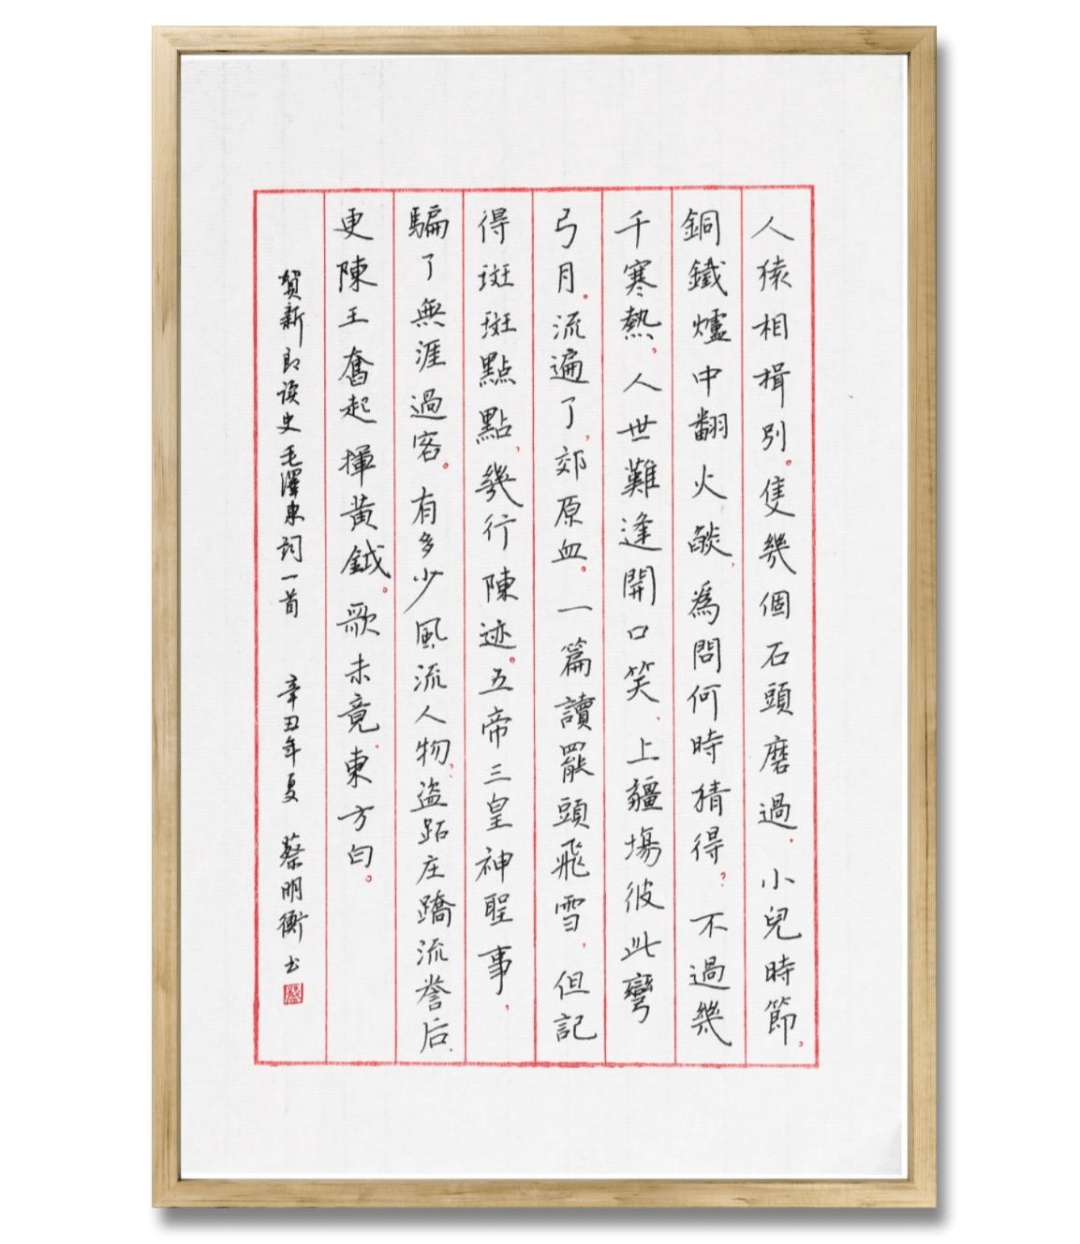 人猿相揖別。隻幾個石頭磨過，小兒時節，
銅鐵爐中翻火燄，為問何時猜得？不過幾
千寒熱，人世難逢開口笑，上疆場彼此彎
弓月。流遍了，郊原血。一篇讀罷頭飛雪，但記
得斑斑點點，幾行陳迹。五帝三皇神聖事，
騙了無涯過客。有多少風流人物，盜跖庄蹻流誉后，
更陳王奮起揮黃鉞。歌未竟，東方白。
贺新郎读史毛澤东词一首 辛丑年夏 蔡明衡书